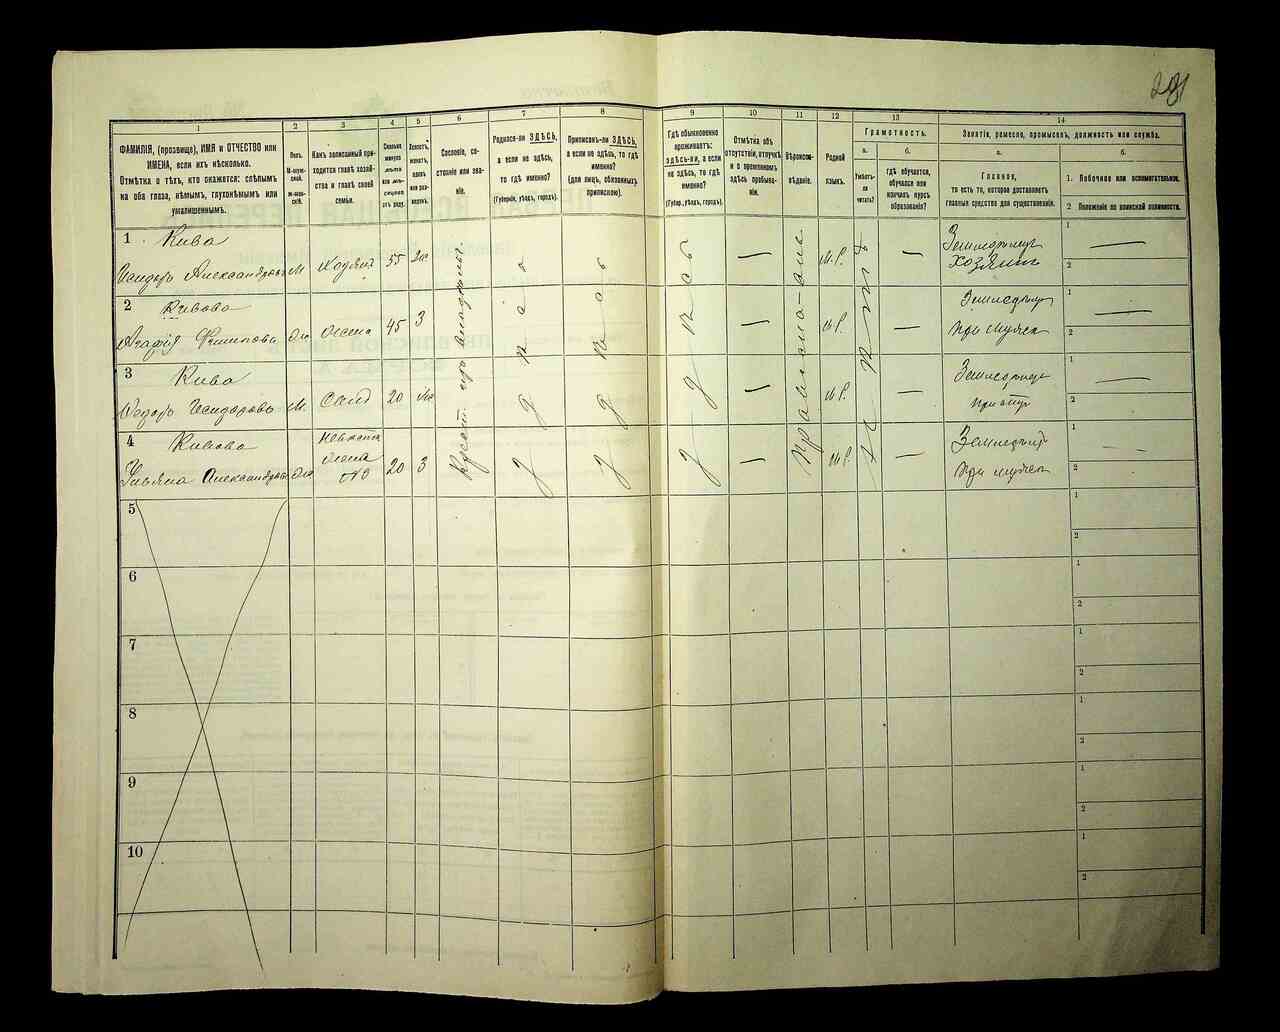 281
1
2
3
4
5
6
7
8
9
10
11
12
13
14
ФАМИЛІЯ, (прозвище), ИМЯ и ОТЧЕСТВО или
ИМЕНА, если ихъ нѣсколько.
Отмѣтка о тѣхъ, кто окажется: слѣпымъ
на оба глаза, нѣмымъ, глухонѣмымъ или
умалишеннымъ.
Полъ.
М-мужской.
Ж-женскій.
Какъ записанный приходится главѣ хозяйства и главѣ своей семьи.
Сколько минуло лѣтъ или мѣсяцевъ отъ роду.
Холостъ, женатъ, вдовъ или разведенъ.
Сословіе, состояніе или званіе.
Родился-ли ЗДѢСЬ,
а если не здѣсь,
то гдѣ именно?
(Губернія, уѣздъ, городъ).
Приписанъ-ли ЗДѢСЬ,
а если не здѣсь, то гдѣ
именно?
(для лицъ, обязанныхъ
припискою).
Гдѣ обыкновенно
проживаетъ:
ЗДѢСЬ-ЛИ, а если
не здѣсь, то гдѣ
именно?
(Губерн., уѣздъ, городъ).
Отмѣтка объ
отсутствіи, отлучкѣ
и о временномъ
здѣсь пребываніи.
Вѣроисповѣданіе.
Родной
языкъ.
Грамотность.
а.
Умѣетъ-ли
читать?
б.
Гдѣ обучается,
обучался или
кончилъ курсъ
образованія?
Занятіе, ремесло, промыселъ, должность или служба.
а.
Главное,
то есть то, которое доставляетъ
главныя средства для существованія.
б.
1. Побочное или вспомогательное.
2 Положеніе по воинской повинности.
1 Кива
Исидоръ Александровъ М. Хозяин 55 М.Р. Земледѣлец
Хозяин
1
2
2 Кивова
Агафія Филипова Ж жена 45 3 М.Р. Земледѣлец
при мужѣ
1
2
3 Кива
Федоръ Исидоровъ М. Сын 20 М.Р. Земледѣлец
при отцѣ
1
2
4 Кивова
Ульяна Александрова Ж Невѣстка
жена
20 3 М.Р. Земледѣлец
при мужѣ
1
2
Крест. изъ владѣльч.
Православное
5
1
2
6
1
2
7
1
2
8
1
2
9
1
2
10
1
2